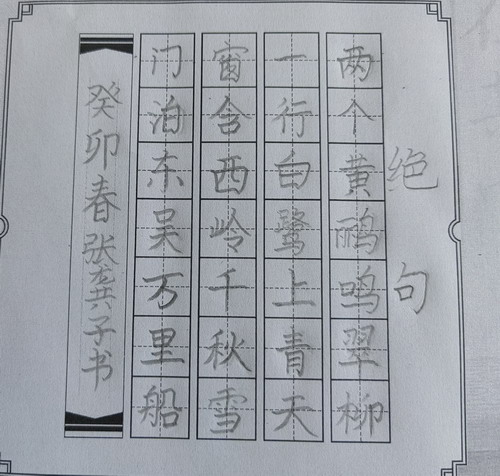 绝句
两个黄鹂鸣翠柳
一行白鹭上青天
窗含西岭千秋雪
门泊东吴万里船
癸卯春张龚子书